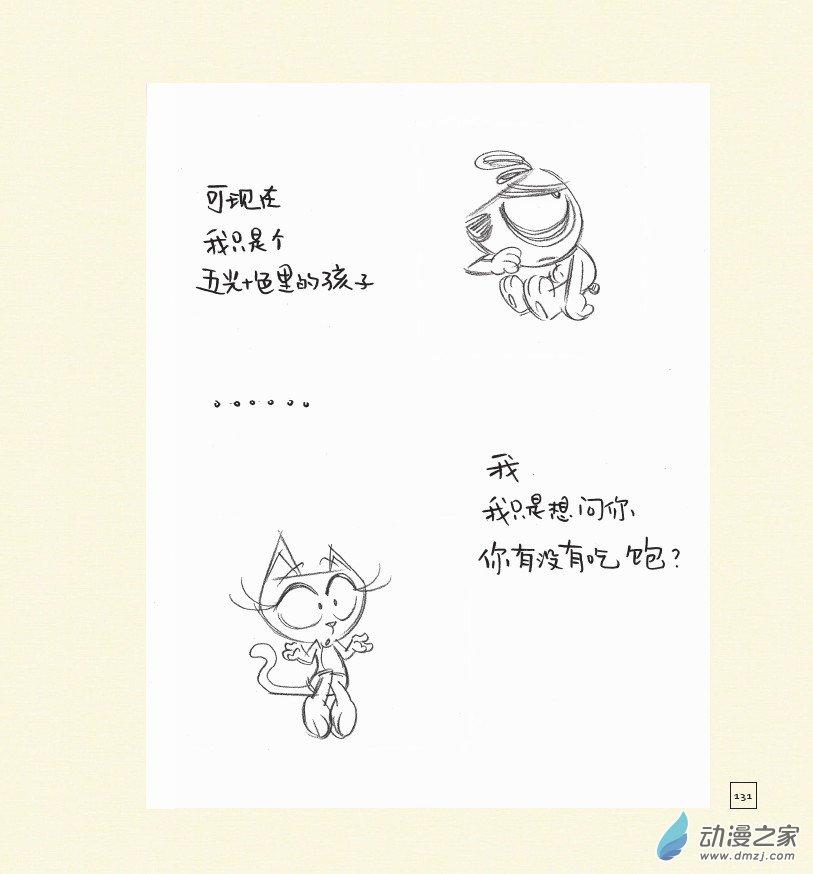 可现在
我只是个
五光十色里的孩子
......
我
我只是想问你
你有没有吃饱？
131
动漫之家
www.dmzj.com